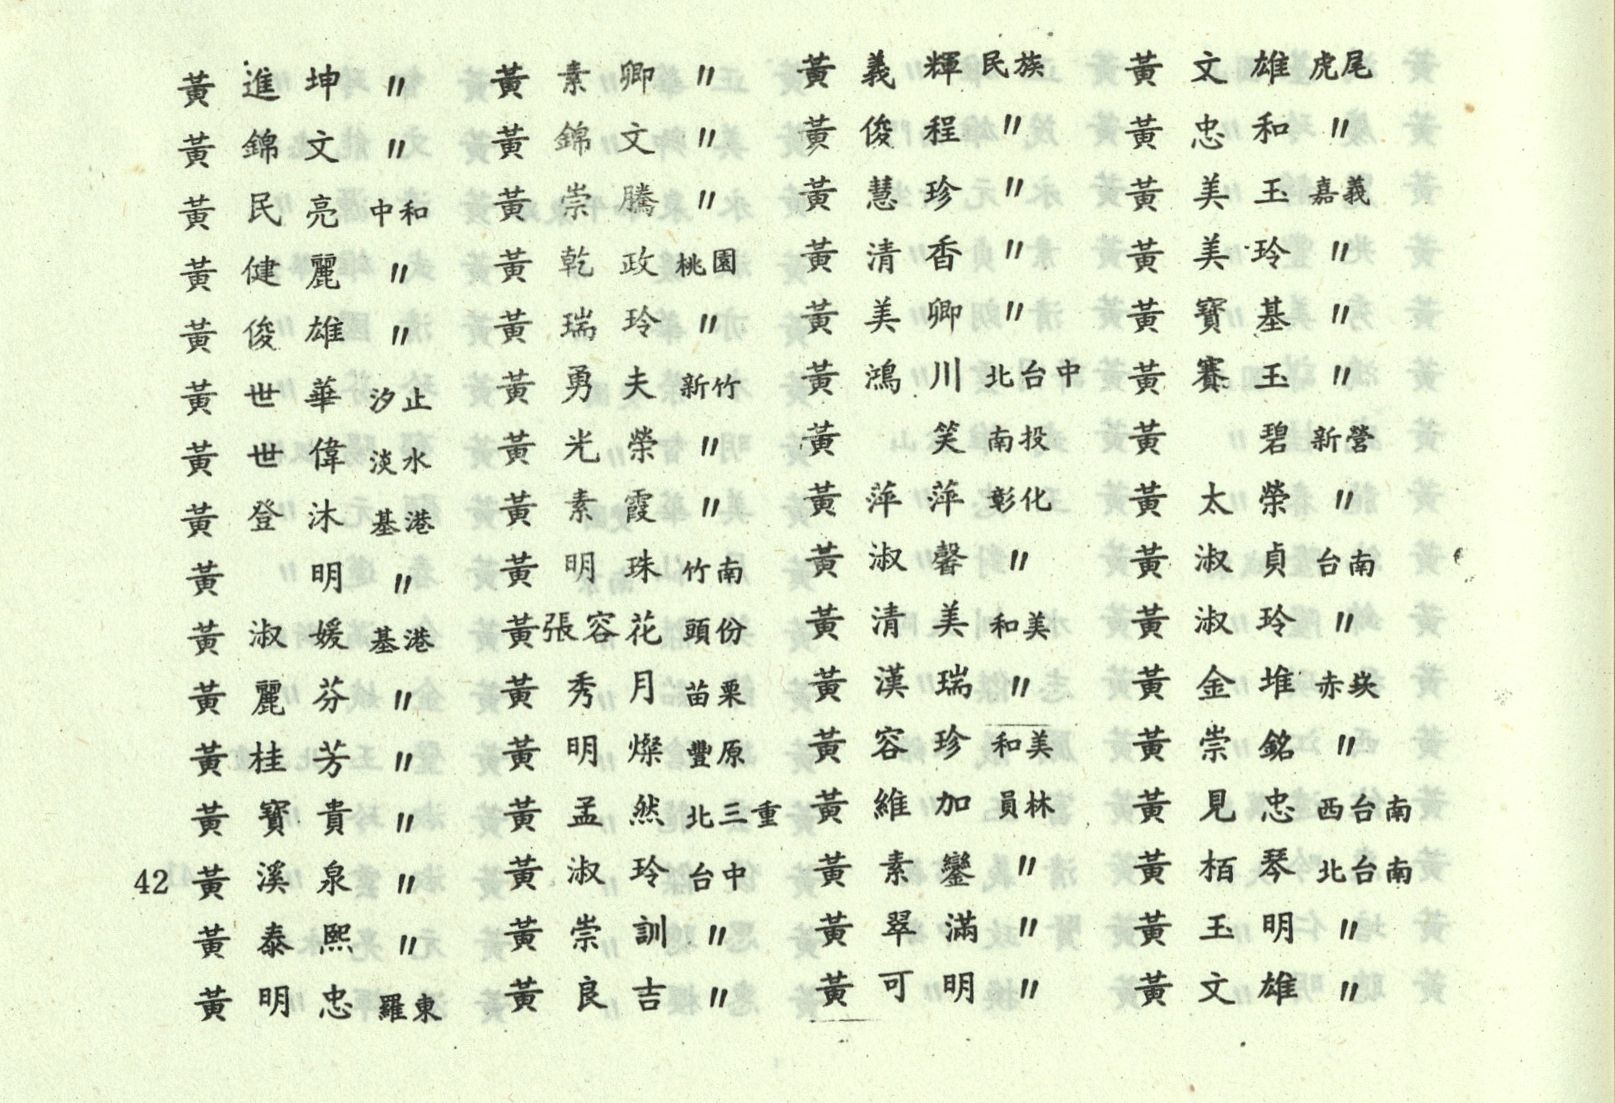 黃進坤 〃
黃錦文 〃
黃民亮 中和
黃健麗 〃
黃俊雄 〃
黃世華 汐止
黃世偉 淡水
黃登沐 基港
黃明 〃
黃淑媛 基港
黃麗芬 〃
黃桂芳 〃
黃寶貴 〃
黃溪泉 〃
黃泰熙 〃
黃明忠 羅東
黃素卿 〃
黃錦文 〃
黃崇騰 〃
黃乾政 桃園
黃瑞玲 〃
黃勇夫 新竹
黃光榮 〃
黃素霞 〃
黃明珠 竹南
黃張容花 頭份
黃秀月 苗栗
黃明燦 豐原
黃孟然 北三重
黃淑玲 台中
黃崇訓 〃
黃良吉 〃
黃義輝 民族
黃俊程 〃
黃慧珍 〃
黃清香 〃
黃美卿 〃
黃鴻川 北台中
黃笑 南投
黃萍萍 彰化
黃淑馨 〃
黃清美 和美
黃漢瑞 〃
黃容珍 和美
黃維加 員林
黃素鑾 〃
黃翠滿 〃
黃可明 〃
黃文雄 虎尾
黃忠和 〃
黃美玉 嘉義
黃美玲 〃
黃寶基 〃
黃賽玉 〃
黃碧 新營
黃太榮 〃
黃淑貞 台南
黃淑玲 〃
黃金堆 赤崁
黃崇銘 〃
黃見忠 西台南
黃栢琴 北台南
黃玉明 〃
黃文雄 〃
42